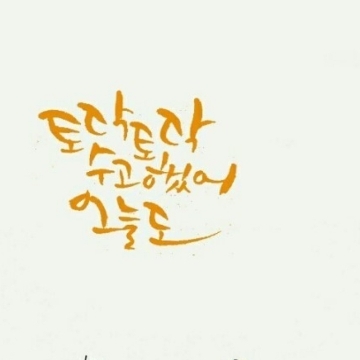 토닥토닥
수고했어
오늘도